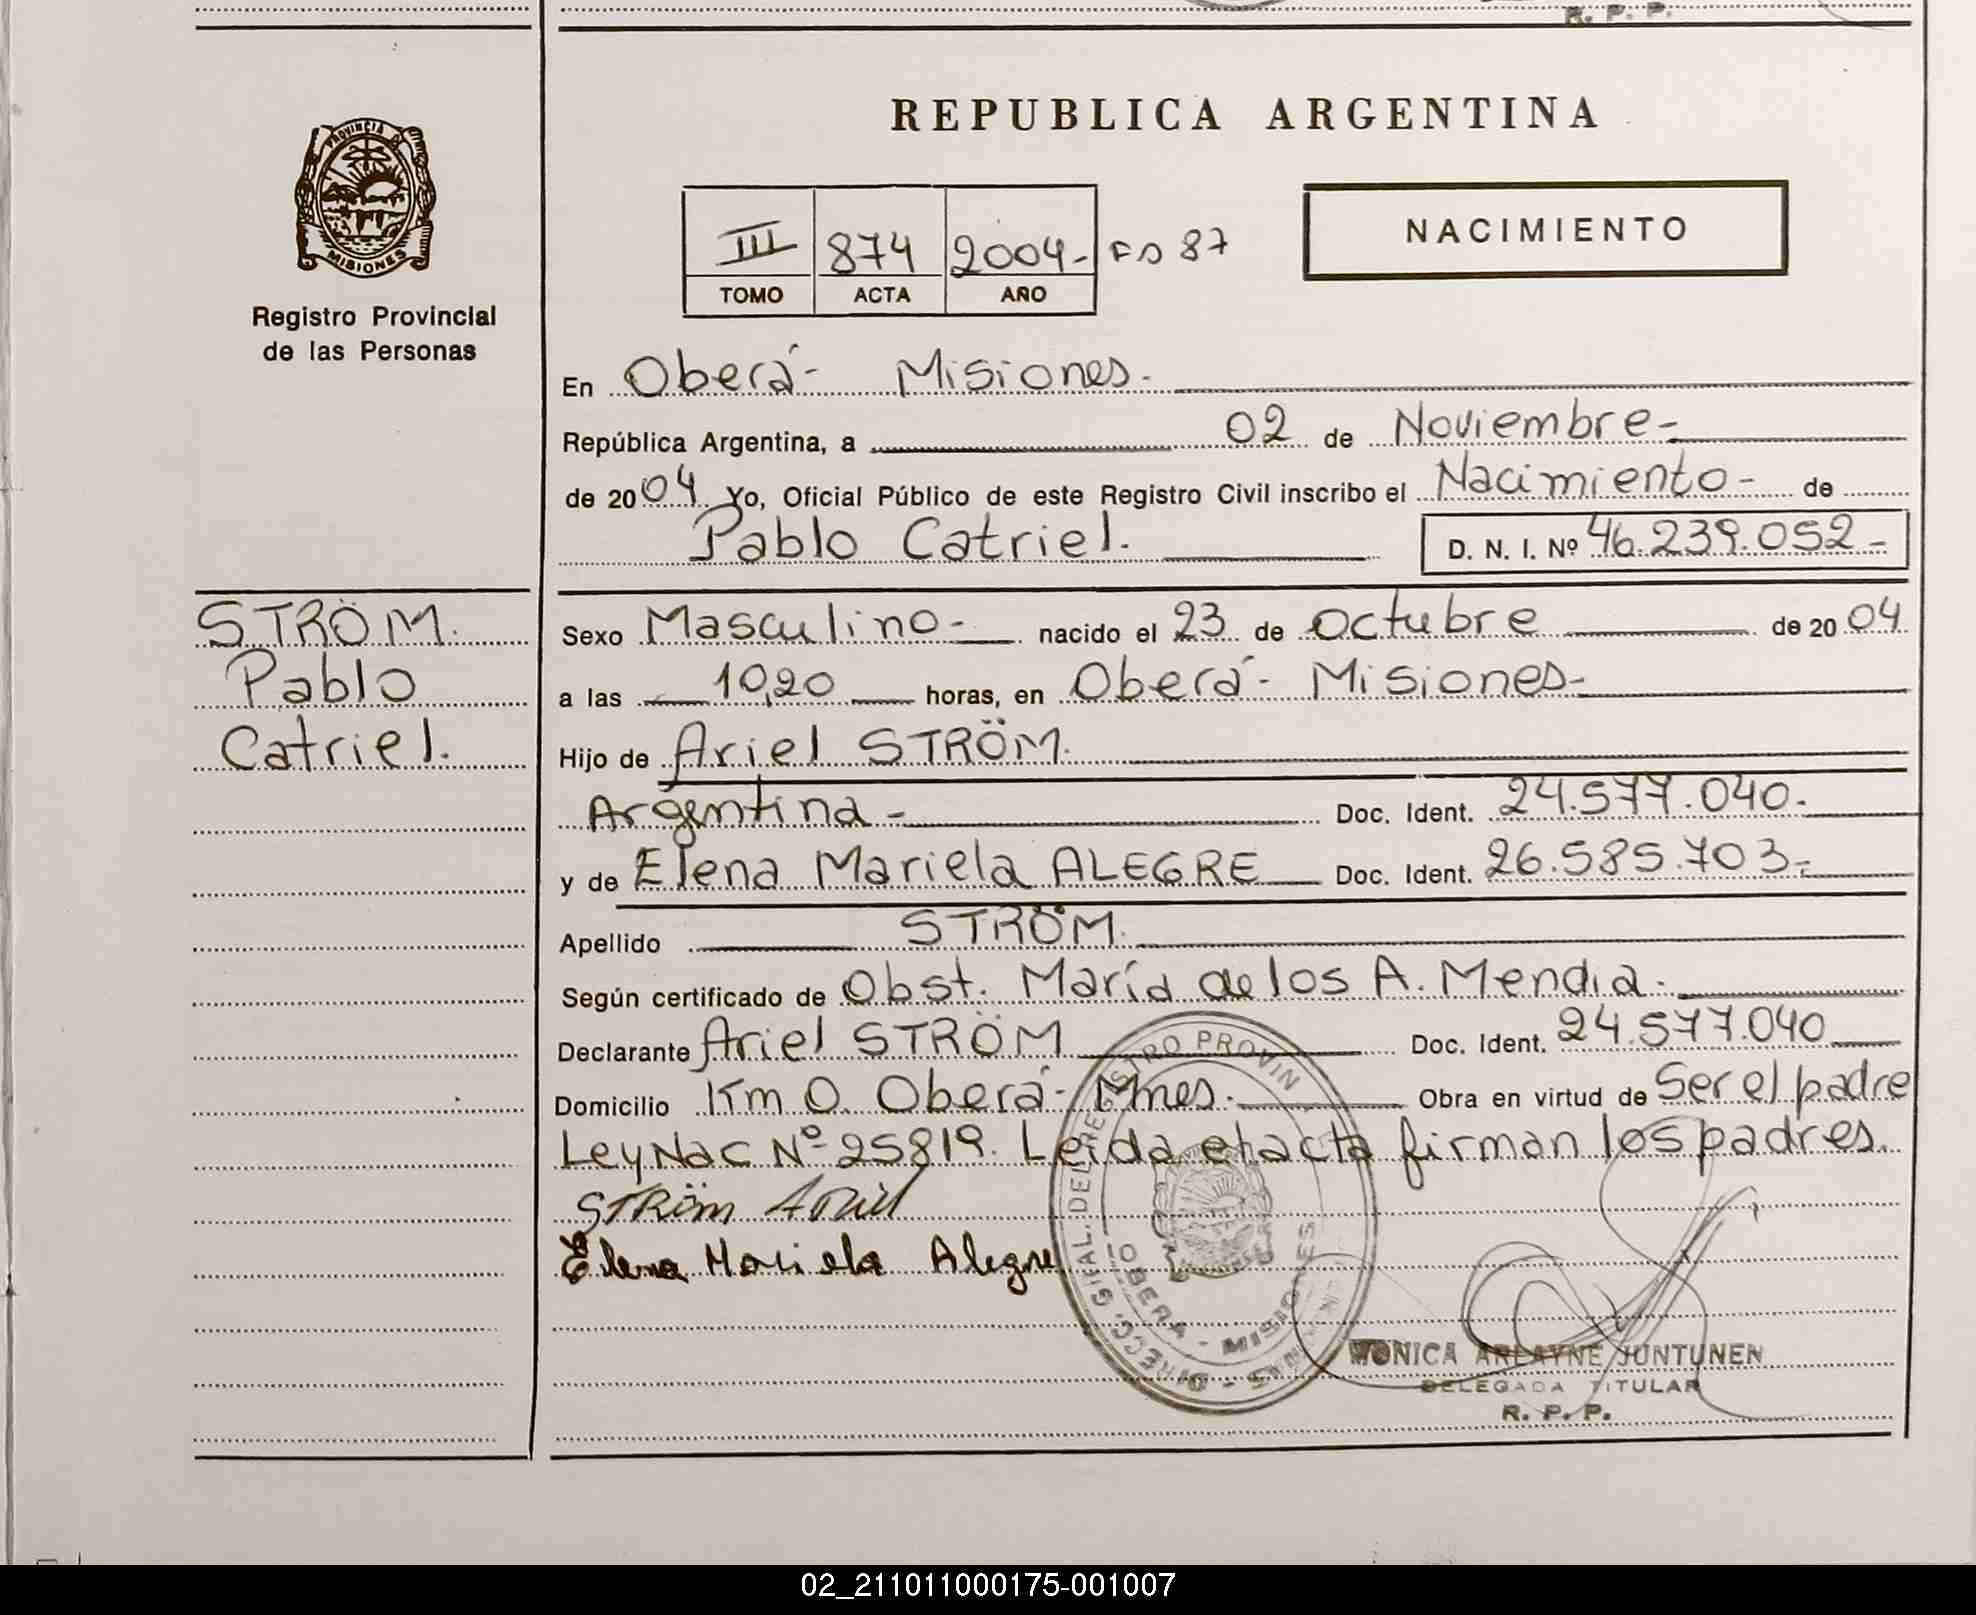 R. P. P.
PROVINCIA DE
MISIONES
Registro Provincial
de las Personas
REPUBLICA ARGENTINA
III 874 2004- Fº 87
TOMO ACTA AÑO
NACIMIENTO
En Oberá- Misiones.
República Argentina, a 02 de Noviembre-
de 2004 Yo, Oficial Público de este Registro Civil inscribo el Nacimiento- de
Pablo Catriel. D. N. I. Nº 46.239.052-
STRÖM.
Pablo
Catriel.
Sexo Masculino- nacido el 23 de Octubre de 2004
a las 10,20 horas, en Oberá- Misiones-
Hijo de Ariel STRÖM.
Argentina- Doc. Ident. 24.577.040.
y de Elena Mariela ALEGRE Doc. Ident. 26.585.703-
Apellido STRÖM.
Según certificado de Obst. María de los A. Mendia.
Declarante Ariel STRÖM Doc. Ident. 24.577.040
Domicilio Km 0. Oberá- Mnes. Obra en virtud de Ser el padre
Ley Nac Nº 25819. Leida el acta firman los padres.
STRöm Ariel
Elena Mariela Alegre
DIRECC. GRAL. DEL REGISTRO PROVIN
OBERA - MISIONES
MONICA ARLAYNE JUNTUNEN
DELEGADA TITULAR
R. P. P.
02_211011000175-001007